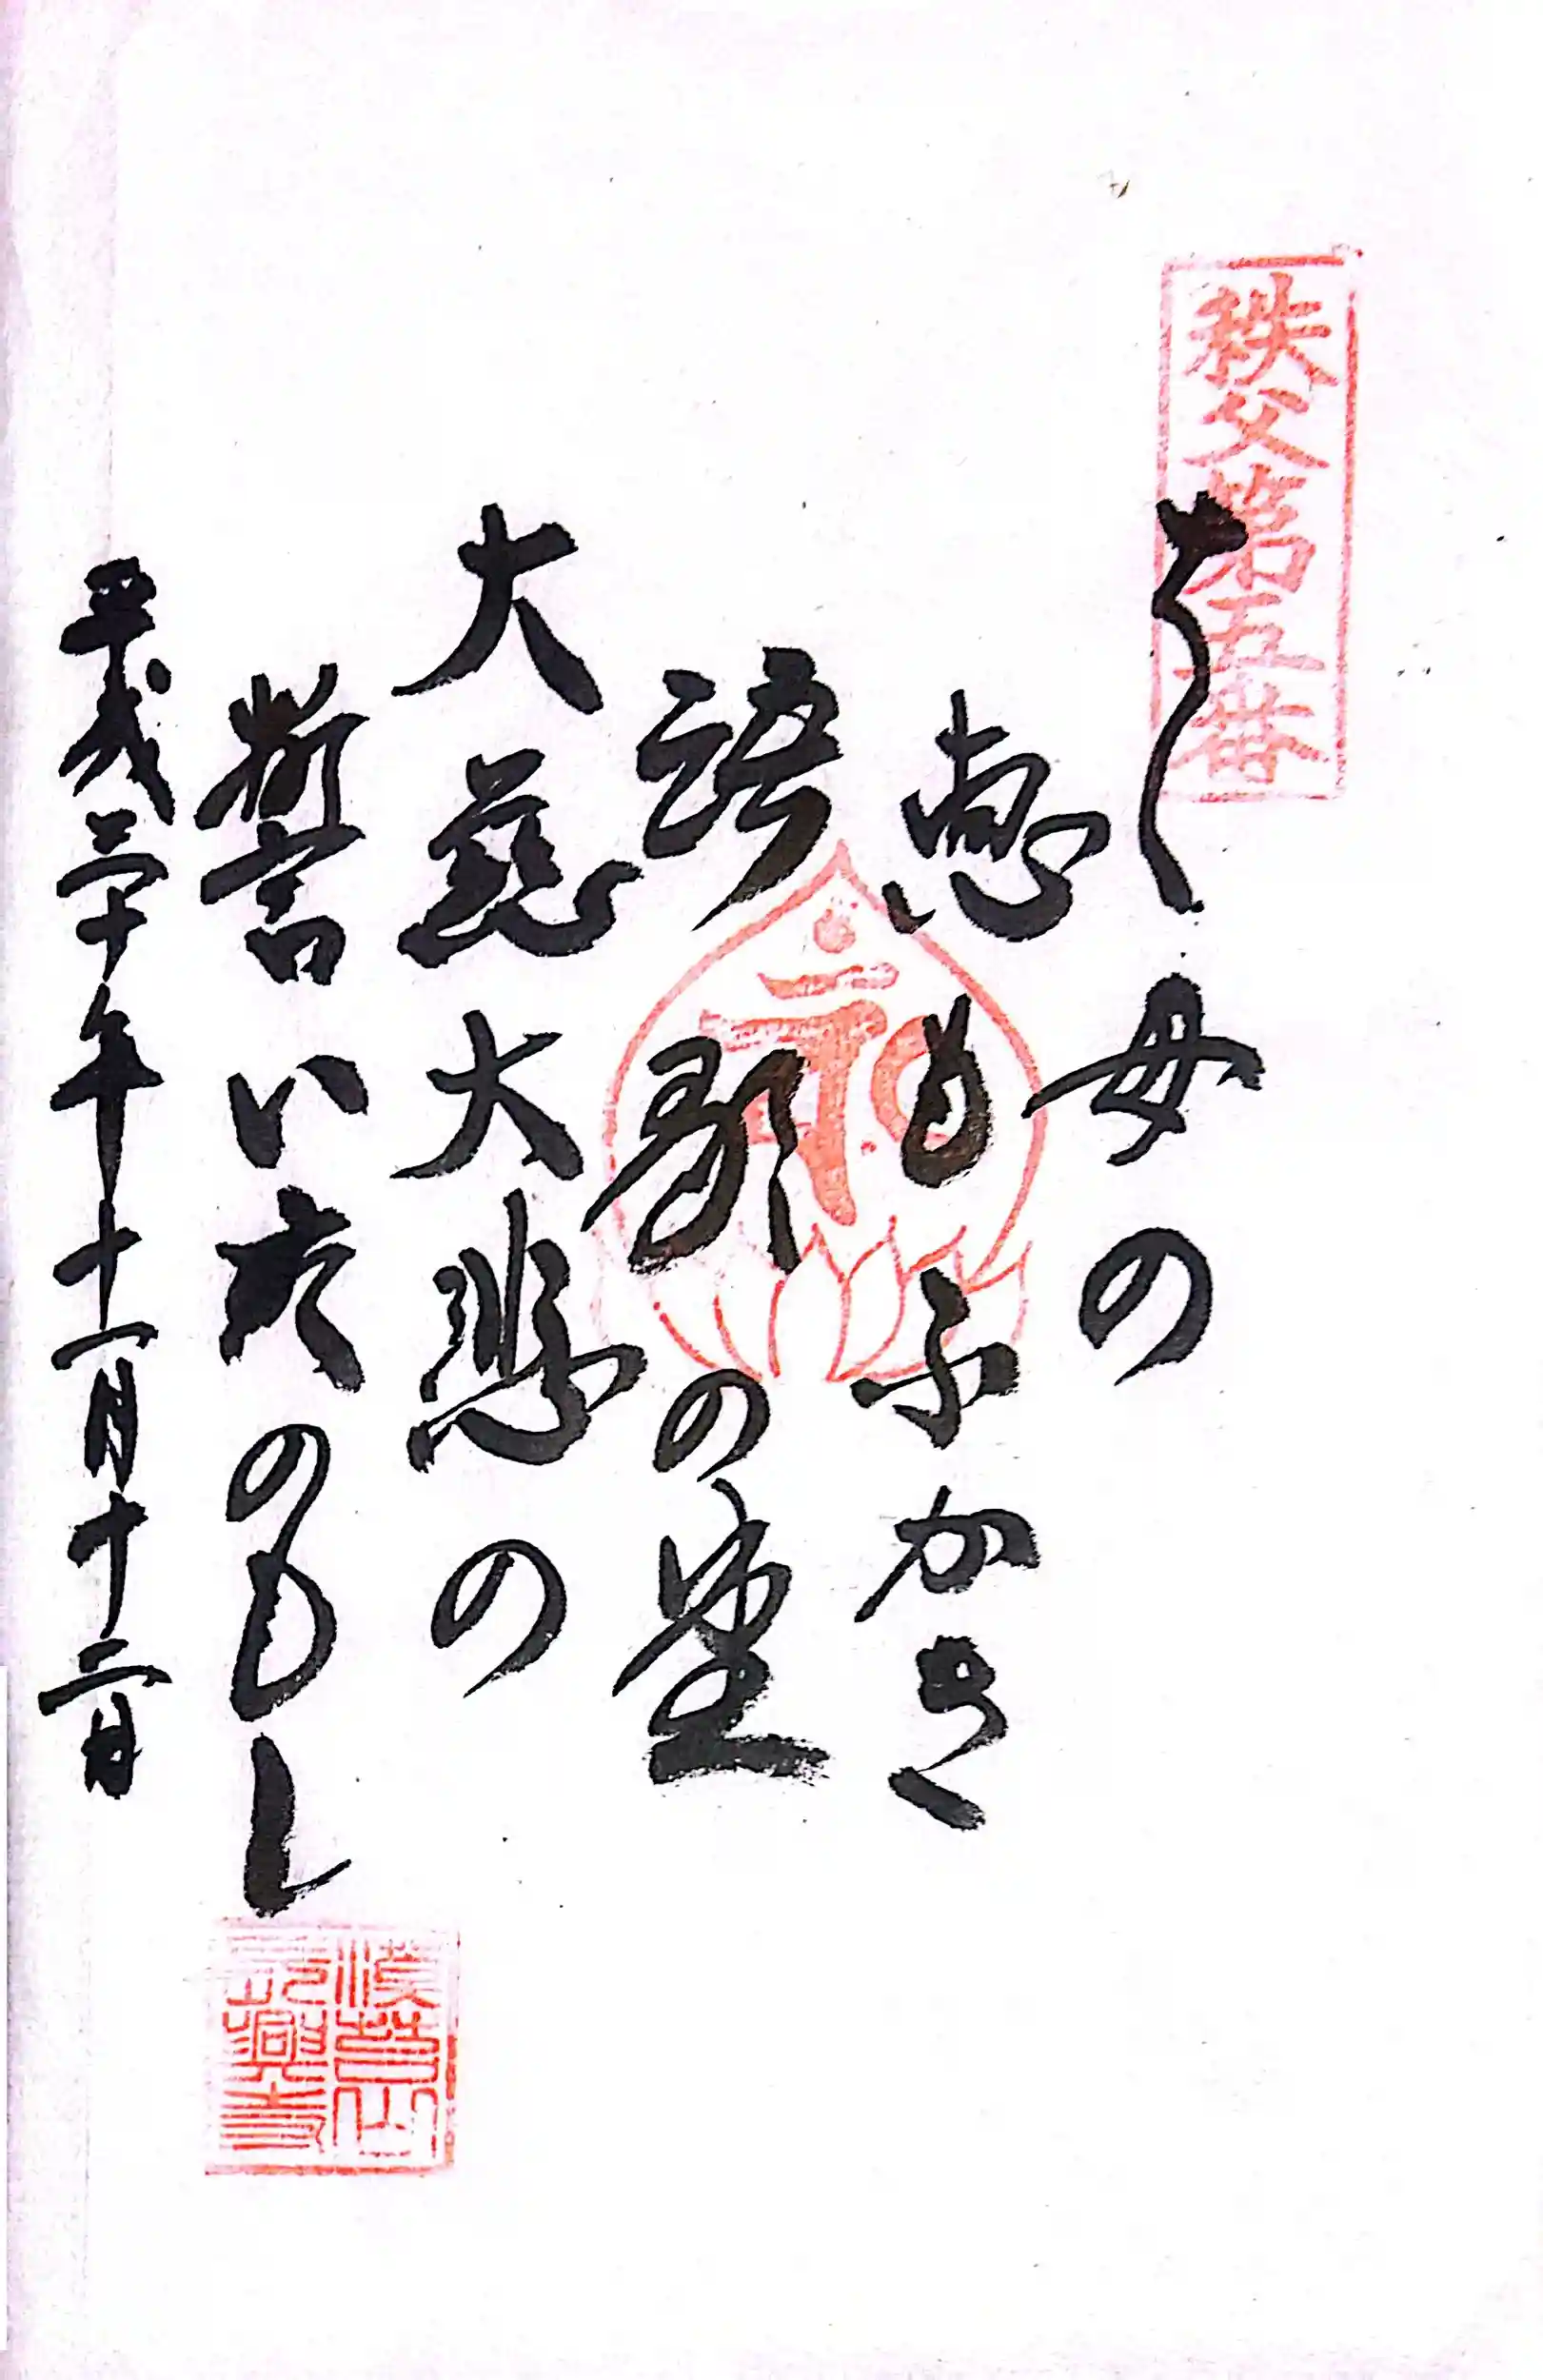 秩父第五番
ちゝ母の
恵もふかき
語歌の堂
大慈大悲の
誓いたのもし
平成三十年十一月十二日
長興寺